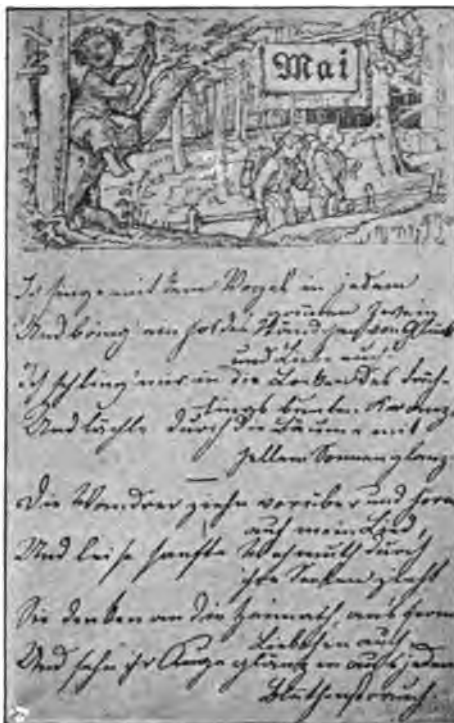 Mai
Ich singe mit dem Vogel in jedem
grünen Zweig
Und bring ein holdes Ständchen von Glück
und Liebe euch
Ich schling' mir in die Locken des Früh-
lings bunten Kranz
Und lächle durch die Bäume mit
hellem Sonnenglanz.
Die Wandrer ziehn vorüber und horchen
auf mein Lied,
Und leise sanfte Wehmuth durch
ihre Seelen zieht
Sie denken an die Heimath, an's ferne
Liebchen auch
Und sehn ihr Auge glänzen aus jedem
Blüthenstrauch.